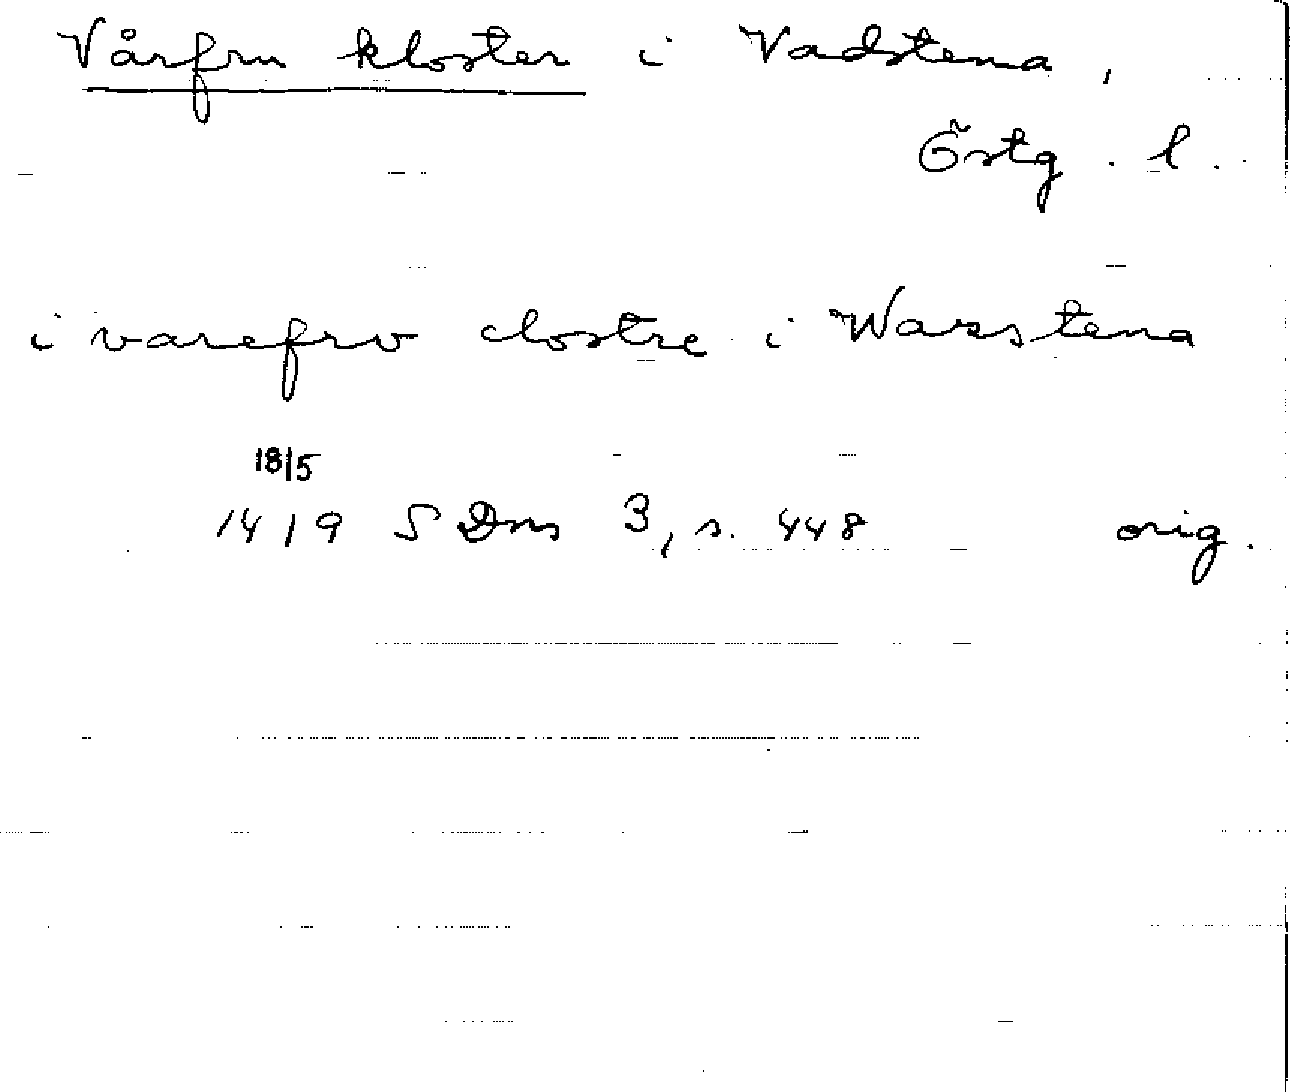 Vårfru kloster i Vadstena,
Östg. l.
i varefrv clostre i Wazstena
18/5
1419 SDns 3, s. 448 orig.